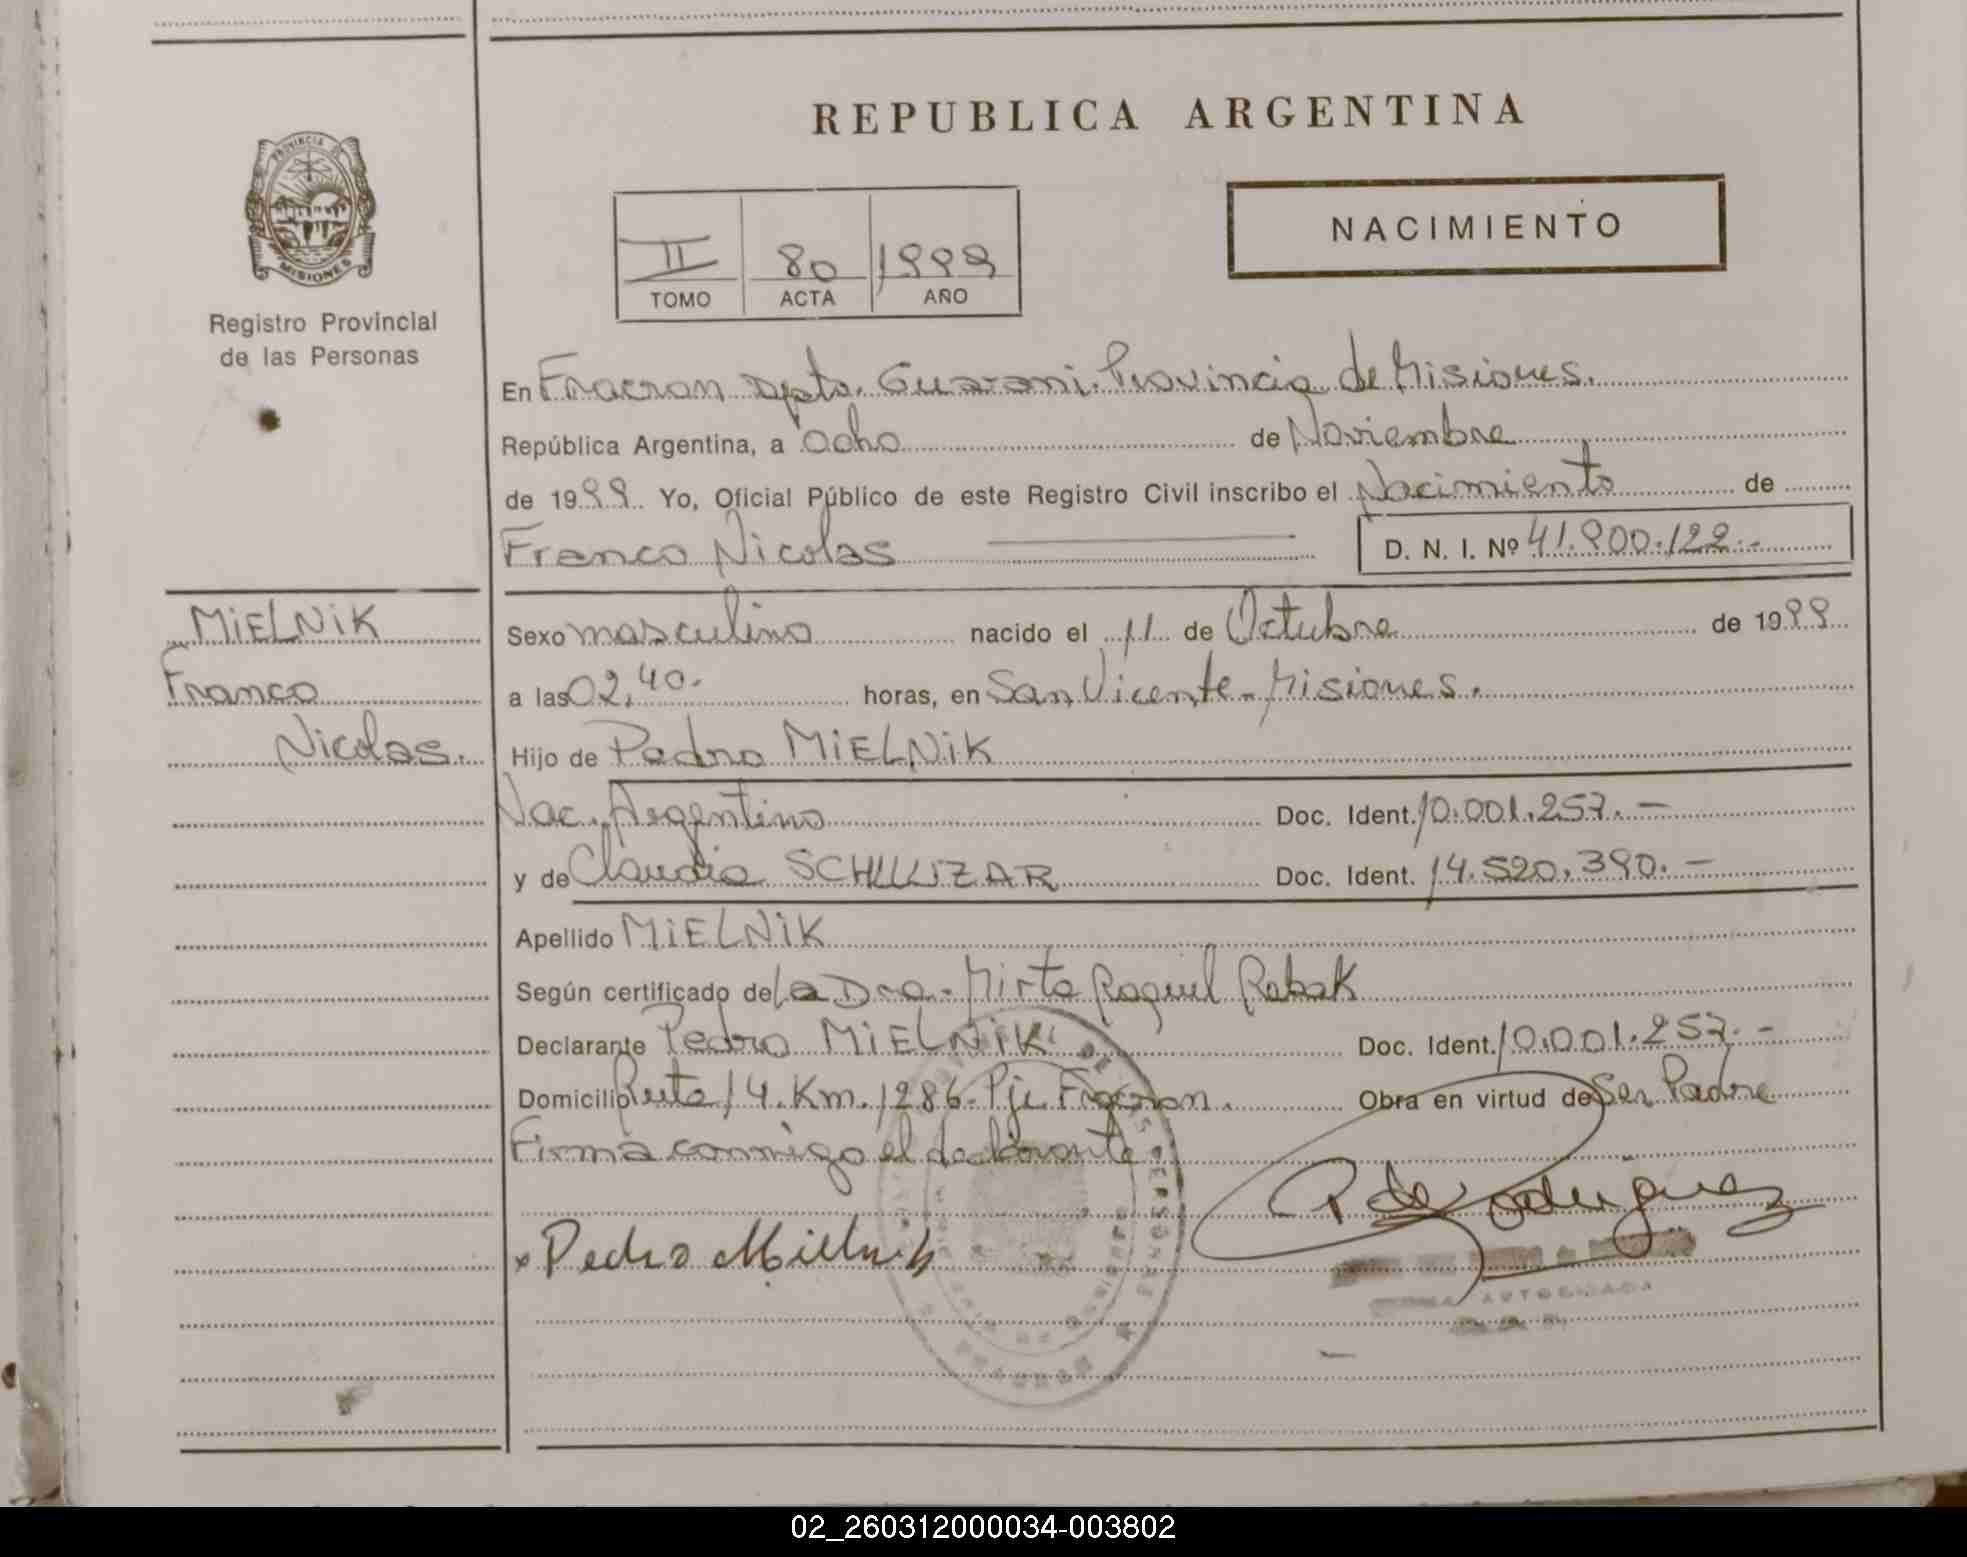 REPUBLICA ARGENTINA
PROVINCIA DE
MISIONES
Registro Provincial
de las Personas
II 80 1999
TOMO ACTA AÑO
NACIMIENTO
En Fracran Dpto. Guarani. Provincia de Misiones.
República Argentina, a Ocho de Noviembre
de 1999. Yo, Oficial Público de este Registro Civil inscribo el Nacimiento de
Franco Nicolas D. N. I. Nº 41.900.122.-
MiELNiK
Franco
Nicolas.
Sexo masculino nacido el 11 de Octubre de 1999
a las 02,40. horas, en San Vicente - Misiones.
Hijo de Pedro MiELNiK
Nac. Argentino Doc. Ident. 10.001.257.-
y de Claudia Doc. Ident. 14.520.390.-
Apellido MiELNiK
Según certificado de la Dra. Mirta Raquel Rabak
Declarante Pedro MiELNiK Doc. Ident. 10.001.257.-
Domicilio Ruta 14. Km. 1286. Pje. Fracran. Obra en virtud de Ser Padre
Firma conmigo el declarante.
x Pedro Mielnik
de Rodriguez
02_260312000034-003802